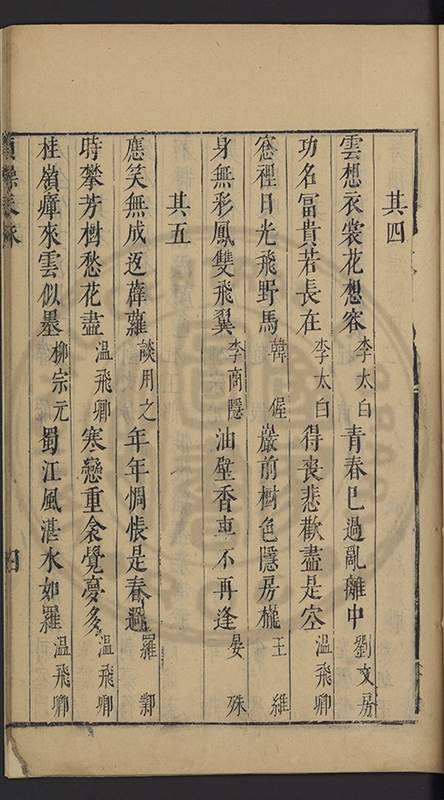 其四
雲想衣裳花想容 李太白 青春已過亂離中 劉文房
功名冨貴若長在 李太白 得喪悲歡盡是空 温飛卿
窓裡日光飛野馬 韓偓 巖前樹色隱房櫳 王維
身無彩鳳雙飛翼 李商隱 油壁香車不再逢 晏殊
其五
應笑無成返薜蘿 談用之 年年惆悵是春過 羅鄴
時攀芳樹愁花盡 温飛卿 寒戀重衾覺夢多 温飛卿
桂嶺瘴來雲似墨 柳宗元 蜀江風湛水如羅 温飛卿
四